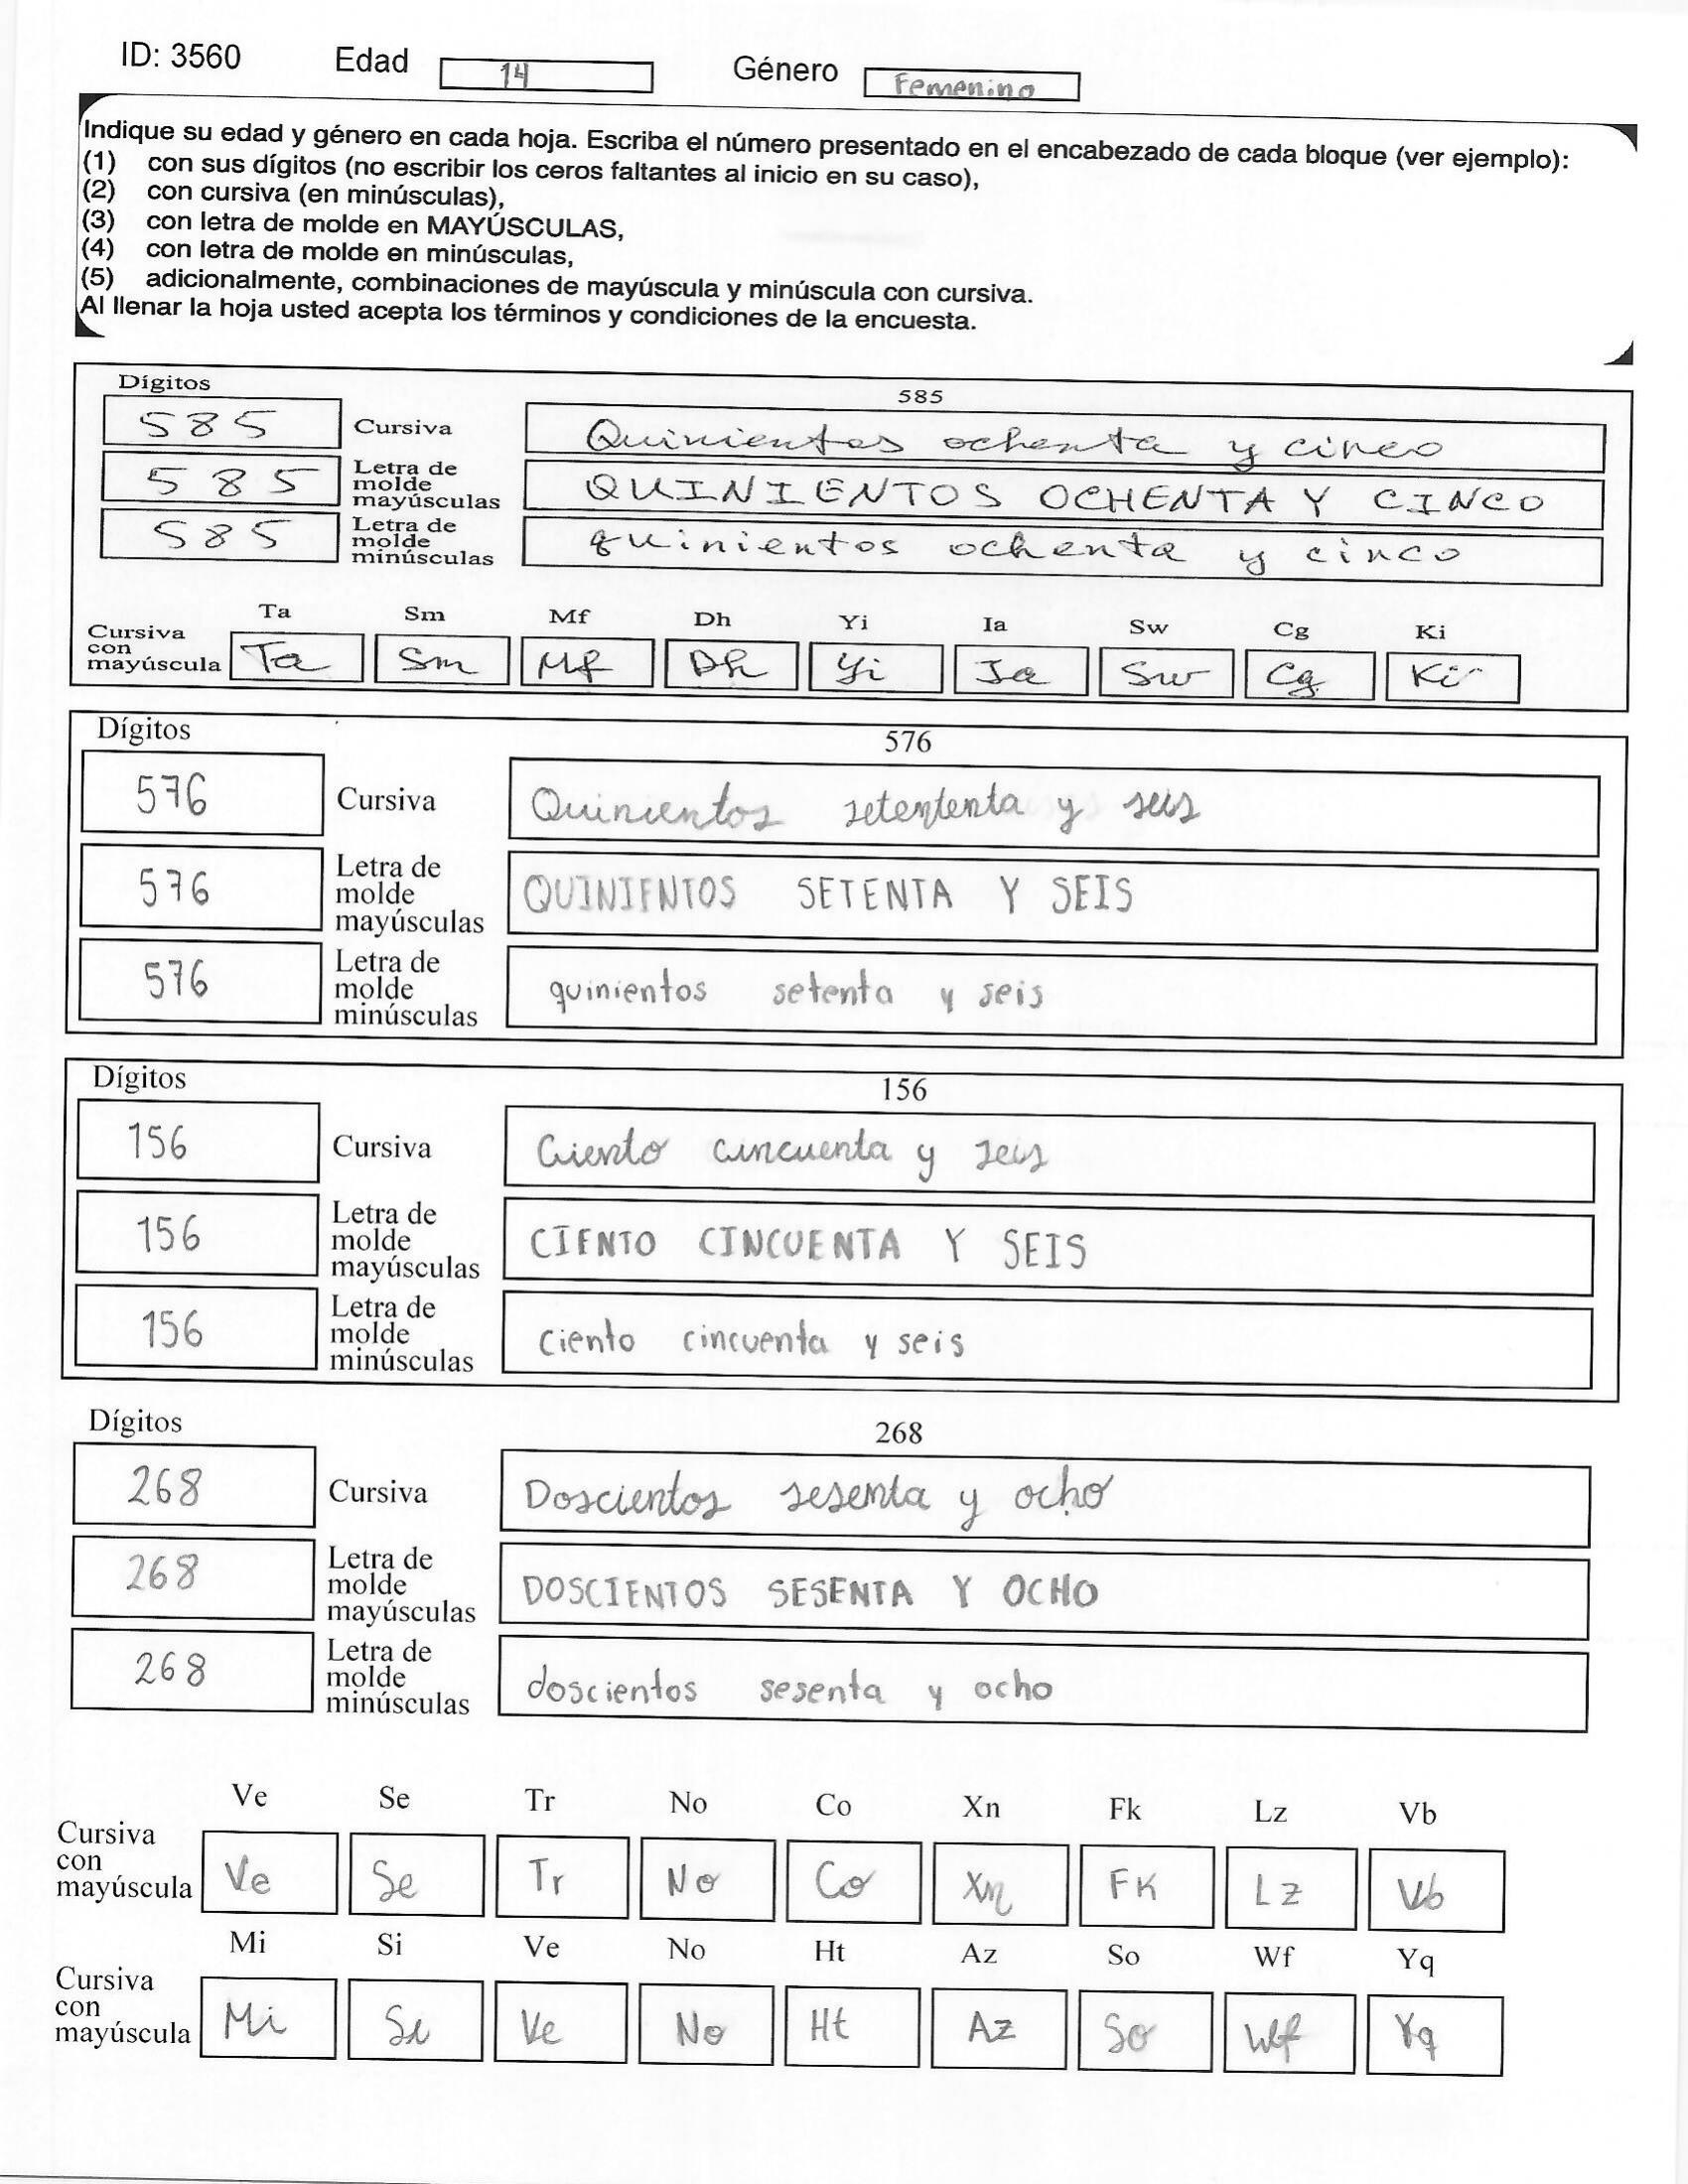 ID: 3560 Edad 14 Género Femenino
Indique su edad y género en cada hoja. Escriba el número presentado en el encabezado de cada bloque (ver ejemplo):
(1) con sus dígitos (no escribir los ceros faltantes al inicio en su caso),
(2) con cursiva (en minúsculas),
(3) con letra de molde en MAYÚSCULAS,
(4) con letra de molde en minúsculas,
(5) adicionalmente, combinaciones de mayúscula y minúscula con cursiva.
Al llenar la hoja usted acepta los términos y condiciones de la encuesta.
Dígitos 585
585 Cursiva Quinientos ochenta y cinco
585 Letra de molde mayúsculas QUINIENTOS OCHENTA Y CINCO
585 Letra de molde minúsculas quinientos ochenta y cinco
Ta Sm Mf Dh Yi Ia Sw Cg Ki
Cursiva con mayúscula Ta Sm Mf Dh Yi Ia Sw Cg Ki
Dígitos 576
576 Cursiva Quinientos setententa y seis
576 Letra de molde mayúsculas QUINIENTOS SETENTA Y SEIS
576 Letra de molde minúsculas quinientos setenta y seis
Dígitos 156
156 Cursiva Ciento cincuenta y seis
156 Letra de molde mayúsculas CIENTO CINCUENTA Y SEIS
156 Letra de molde minúsculas ciento cincuenta y seis
Dígitos 268
268 Cursiva Doscientos sesenta y ocho
268 Letra de molde mayúsculas DOSCIENTOS SESENTA Y OCHO
268 Letra de molde minúsculas doscientos sesenta y ocho
Ve Se Tr No Co Xn Fk Lz Vb
Cursiva con mayúscula Ve Se Tr No Co Xn FK Lz Vb
Mi Si Ve No Ht Az So Wf Yq
Cursiva con mayúscula Mi Si Ve No Ht Az So Wf Yq